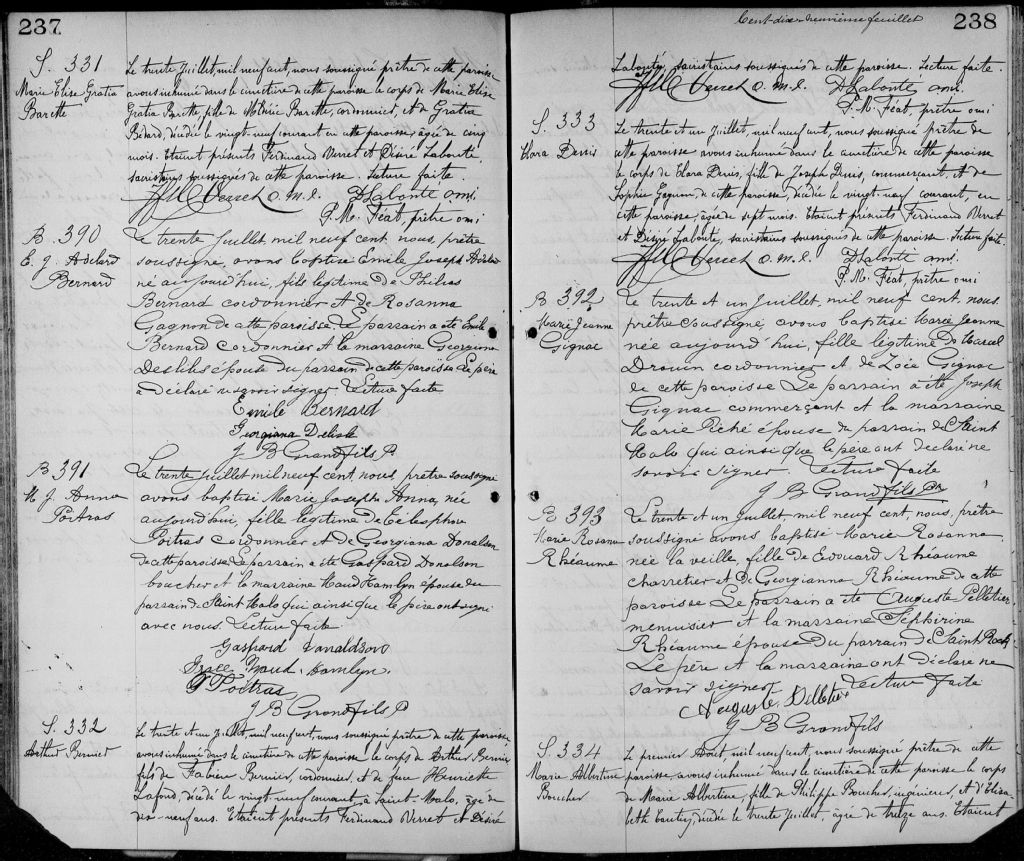 237
S. 331
Marie Elise Gratia
Barette
Le trente Juillet, mil neuf cent, nous soussigné prêtre de cette paroisse
avons inhumé dans le cimetière de cette paroisse le corps de Marie Elise
Gratia Barette, fille de Barette, cordonnier, et de Gratia
Bédard, décédée le vingt-neuf courant en cette paroisse, âgée de cinq
mois. Etaient présents Ferdinand Verret et Désiré Labonté,
sacristains soussignés de cette paroisse. Lecture faite.
Verret o. m. i. D Labonté omi.
P. M. Féat, prêtre omi
B. 390
E. J. Adelard
Bernard
Le trente Juillet, mil neuf cent, nous, prêtre
soussigné, avons baptisé Emile Joseph Adelard
né aujourd'hui, fils légitime de Philias
Bernard cordonnier et de Rosanna
Gagnon de cette paroisse. Le parrain a été Emile
Bernard cordonnier et la marraine Georgiana
Deslisle épouse du parrain de cette paroisse. Le père
a déclaré ne savoir signer. Lecture faite
Emile Bernard
Georgiana Delisle
J B Grandfils P.
B. 391
M J. Anna
Poitras
Le trente Juillet mil neuf cent, nous, prêtre soussigné
avons baptisé Marie Joseph Anna, née
aujourd'hui, fille légitime de Télesphore
Poitras cordonnier et de Georgiana Donalson
de cette paroisse. Le parrain a été Gaspard Donalson
boucher et la marraine Maud Hamlyn épouse du
parrain de Saint Malo qui ainsi que le père ont signé
avec nous. Lecture faite
Gaspard Donaldson
Maud Hamlyn.
Poitras
J B Grandfils P
S. 332
Arthur Bernier
Le trente et un Juillet, mil neuf cent, nous soussigné prêtre de cette paroisse
avons inhumé dans le cimetière de cette paroisse le corps de Arthur Bernier
fils de Fabien Bernier, cordonnier, et de feue Henriette
Lafond, décédé le vingt-neuf courant à Saint-Malo, âgé de
dix-neuf ans. Etaient présents Ferdinand Verret et Désiré
Cent-dix-neuvième feuillet
238
Labonté, sacristains soussignés de cette paroisse. Lecture faite.
Verret o. m. i. D Labonté omi.
P. M. Féat, prêtre omi
S. 333
Clara Denis
Le trente et un Juillet, mil neuf cent, nous soussigné prêtre de
cette paroisse avons inhumé dans le cimetière de cette paroisse
le corps de Clara Denis, fille de Joseph Denis, commerçant, et de
Sophie Gagnon, de cette paroisse, décédée le vingt-neuf courant, en
cette paroisse, âgée de sept mois. Etaient présents Ferdinand Verret
et Désiré Labonté, sacristains soussignés de cette paroisse. Lecture faite.
Verret o. m. i. D Labonté omi.
P. M. Féat, prêtre omi
B 392
Marie Jeanne
Gignac
Le trente et un Juillet, mil neuf cent, nous
prêtre soussigné, avons baptisé Marie Jeanne
née aujourd'hui, fille légitime de Marcel
Drouin cordonnier et de Zoée Gignac
de cette paroisse Le parrain a été Joseph
Gignac commerçant et la marraine
Marie Piché épouse du parrain de Saint
Malo qui ainsi que le père ont déclaré ne
savoir signer. Lecture faite
J B Grandfils Ptr
B 393
Marie Rosanna
Rhéaume
Le trente et un Juillet, mil neuf cent, nous, prêtre
soussigné avons baptisé Marie Rosanna
née la veille, fille de Edouard Rhéaume
charretier et de Georgianna Rhéaume de cette
paroisse Le parrain a été Auguste Pelletier
menuisier et la marraine Sephirine
Rhéaume épouse du parrain de Saint Roch
Le père et la marraine ont déclaré ne
savoir signer Lecture faite
Auguste Pelletier
J B Grandfils
S. 334
Marie Albertine
Boucher
Le premier Août, mil neuf cent, nous soussigné prêtre de cette
paroisse avons inhumé dans le cimetière de cette paroisse le corps
de Marie Albertine, fille de Philippe Boucher, ingénieur, et d'Eliza-
beth, décédée le trente Juillet, âgée de treize ans. Etaient